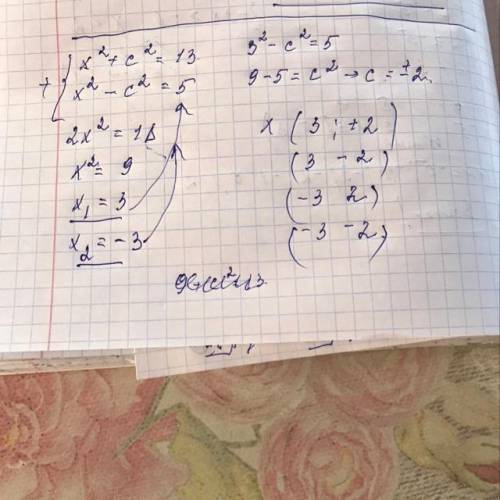 + { x² + c² = 13
x² - c² = 5
2x² = 18
x² = 9
x₁ = 3
x₂ = -3
3² - c² = 5
9 - 5 = c² → c = ±2
x (3 ; +2)
(3 -2)
(-3 2)
(-3 -2)